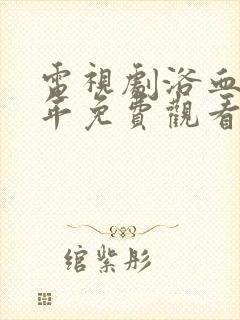 電視劇浴血
年免費觀看
綰紫彤